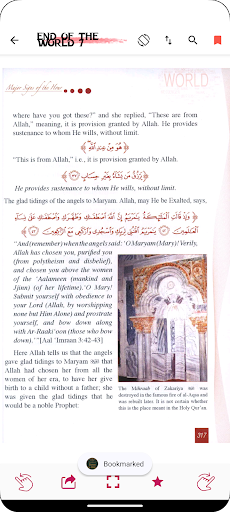 END OF THE
WORLD 7
WORLD
Major Signs of the Hour
where have you got these?" and she replied, "These are from
Allah," meaning, it is provision granted by Allah. He provides
sustenance to whom He wills, without limit.
﴿هُوَ مِنْ عِندِ اللَّهِ﴾
"This is from Allah," i.e., it is provision granted by Allah.
He provides sustenance to whom He wills, without limit.
The glad tidings of the angels to Maryam. Allah, may He be Exalted, says,
"And (remember) when the angels said: 'O Maryam (Mary)! Verily,
Allah has chosen you, purified you
(from polytheism and disbelief),
and chosen you above the women
of the 'Aalameen (mankind and
Jinns) (of her lifetime).'O Mary!
Submit yourself with obedience to
your Lord (Allah, by worshipping
none but Him Alone) and prostrate
yourself, and bow down along
with Ar-Raaki'oon (those who bow
down).'"[Aal 'Imraan 3:42-43]
Here Allah tells us that the angels
gave glad tidings to Maryam that
Allah had chosen her from all the
women of her era, to have her give
birth to a child without a father; she
was given the glad tidings that he
would be a noble Prophet:
The Mihraab of Zakariya was
destroyed in the famous fire of al-Aqsa and
was rebuilt later. It is not certain whether
this is the place meant in the Holy Qur'an.
317
Bookmarked